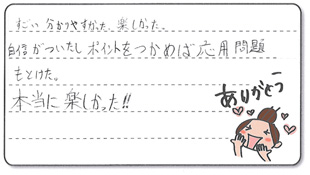 すごい 分かりやすかった、楽しかった。
自信がついたし ポイントをつかめば応用問題
もとけた。
本当に楽しかった!!
ありがとう